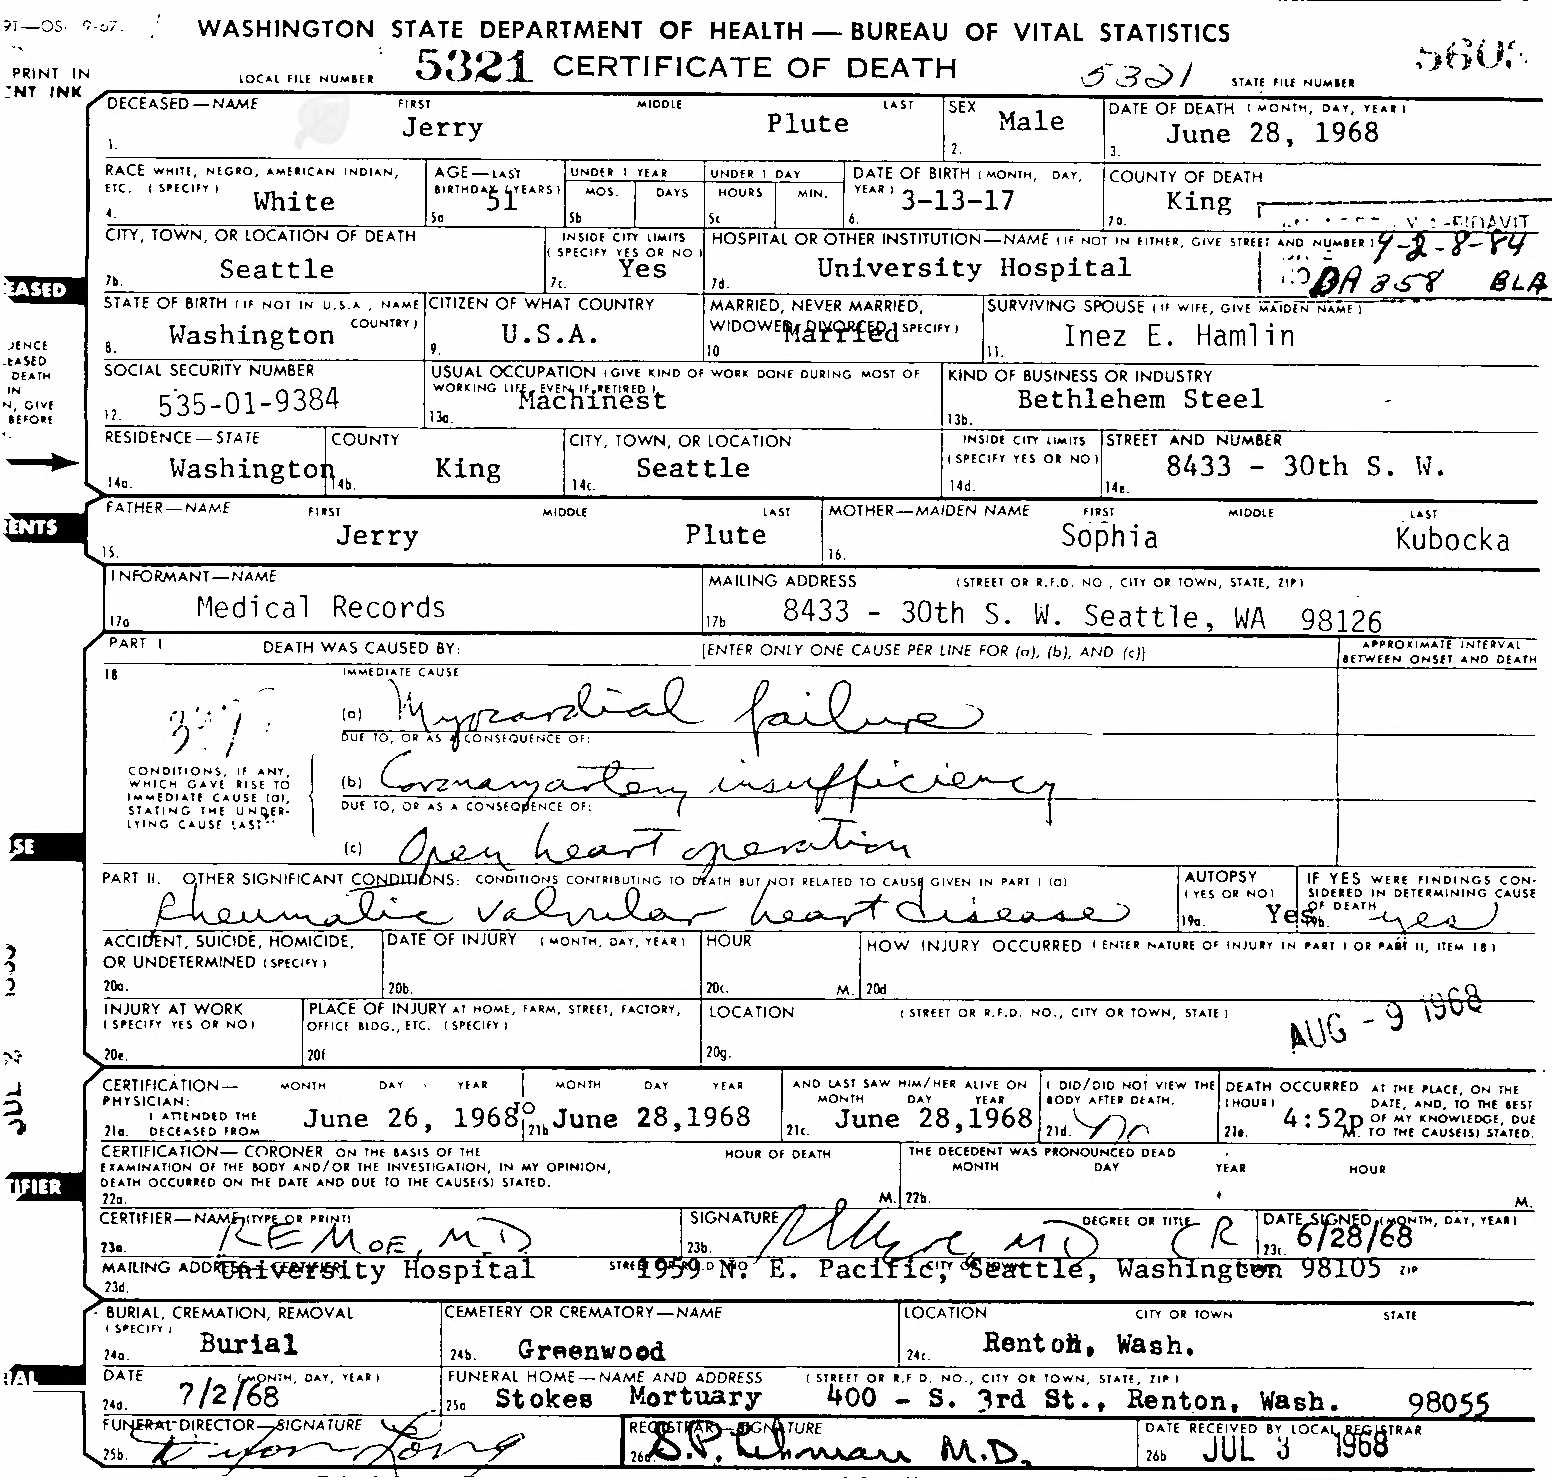 9-67
WASHINGTON STATE DEPARTMENT OF HEALTH — BUREAU OF VITAL STATISTICS
PRINT IN
INK
LOCAL FILE NUMBER 5321 CERTIFICATE OF DEATH 5321 STATE FILE NUMBER
DECEASED—NAME FIRST MIDDLE LAST SEX DATE OF DEATH (MONTH, DAY, YEAR)
1. Jerry Plute 2. Male 3. June 28, 1968
RACE WHITE, NEGRO, AMERICAN INDIAN, AGE—LAST UNDER 1 YEAR UNDER 1 DAY DATE OF BIRTH (MONTH, DAY, COUNTY OF DEATH
ETC. (SPECIFY) BIRTHDAY (YEARS) MOS. DAYS HOURS MIN. YEAR)
4. White 5a 51 5b 5c 6. 3-13-17 7a. King
AFFIDAVIT
CITY, TOWN, OR LOCATION OF DEATH INSIDE CITY LIMITS HOSPITAL OR OTHER INSTITUTION—NAME (IF NOT IN EITHER, GIVE STREET AND NUMBER) 9-28-84
(SPECIFY YES OR NO)
7b. Seattle 7c. Yes 7d. University Hospital DA 358 BLA
STATE OF BIRTH (IF NOT IN U.S.A., NAME CITIZEN OF WHAT COUNTRY MARRIED, NEVER MARRIED, SURVIVING SPOUSE (IF WIFE, GIVE MAIDEN NAME)
COUNTRY) WIDOWED, DIVORCED (SPECIFY)
8. Washington 9. U.S.A. 10 Married 11. Inez E. Hamlin
SOCIAL SECURITY NUMBER USUAL OCCUPATION (GIVE KIND OF WORK DONE DURING MOST OF KIND OF BUSINESS OR INDUSTRY
WORKING LIFE, EVEN IF RETIRED)
12. 535-01-9384 13a. Machinest 13b. Bethlehem Steel
RESIDENCE—STATE COUNTY CITY, TOWN, OR LOCATION INSIDE CITY LIMITS STREET AND NUMBER
(SPECIFY YES OR NO)
14a. Washington 14b. King 14c. Seattle 14d. 14e. 8433 - 30th S. W.
FATHER—NAME FIRST MIDDLE LAST MOTHER—MAIDEN NAME FIRST MIDDLE LAST
15. Jerry Plute 16. Sophia Kubocka
INFORMANT—NAME MAILING ADDRESS (STREET OR R.F.D. NO., CITY OR TOWN, STATE, ZIP)
17a Medical Records 17b 8433 - 30th S. W. Seattle, WA 98126
PART I DEATH WAS CAUSED BY: [ENTER ONLY ONE CAUSE PER LINE FOR (a), (b), AND (c)] APPROXIMATE INTERVAL
BETWEEN ONSET AND DEATH
18 IMMEDIATE CAUSE
(a) Myocardial failure
DUE TO, OR AS A CONSEQUENCE OF:
CONDITIONS, IF ANY,
WHICH GAVE RISE TO
IMMEDIATE CAUSE (a),
STATING THE UNDER-
LYING CAUSE LAST
(b) Coronary artery insufficiency
DUE TO, OR AS A CONSEQUENCE OF:
(c) Open heart operation
PART II. OTHER SIGNIFICANT CONDITIONS: CONDITIONS CONTRIBUTING TO DEATH BUT NOT RELATED TO CAUSE GIVEN IN PART I (a) AUTOPSY IF YES WERE FINDINGS CON-
(YES OR NO) SIDERED IN DETERMINING CAUSE
OF DEATH
Rheumatic valvular heart disease 19a. Yes 19b. yes
ACCIDENT, SUICIDE, HOMICIDE, DATE OF INJURY (MONTH, DAY, YEAR) HOUR HOW INJURY OCCURRED (ENTER NATURE OF INJURY IN PART I OR PART II, ITEM 18)
OR UNDETERMINED (SPECIFY)
20a. 20b. 20c. M. 20d
INJURY AT WORK PLACE OF INJURY AT HOME, FARM, STREET, FACTORY, LOCATION (STREET OR R.F.D. NO., CITY OR TOWN, STATE)
(SPECIFY YES OR NO) OFFICE BLDG., ETC. (SPECIFY)
20e. 20f 20g. AUG - 9 1968
CERTIFICATION— MONTH DAY YEAR MONTH DAY YEAR AND LAST SAW HIM/HER ALIVE ON I DID/DID NOT VIEW THE DEATH OCCURRED AT THE PLACE, ON THE
PHYSICIAN: MONTH DAY YEAR BODY AFTER DEATH. (HOUR) DATE, AND, TO THE BEST
I ATTENDED THE OF MY KNOWLEDGE, DUE
21a. DECEASED FROM June 26, 1968 TO 21b June 28,1968 21c. June 28,1968 21d. 21e. 4:52p M. TO THE CAUSE(S) STATED.
CERTIFICATION— CORONER ON THE BASIS OF THE HOUR OF DEATH THE DECEDENT WAS PRONOUNCED DEAD
EXAMINATION OF THE BODY AND/OR THE INVESTIGATION, IN MY OPINION, MONTH DAY YEAR HOUR
DEATH OCCURRED ON THE DATE AND DUE TO THE CAUSE(S) STATED.
22a. M. 22b. M.
CERTIFIER—NAME (TYPE OR PRINT) SIGNATURE DEGREE OR TITLE DATE SIGNED (MONTH, DAY, YEAR)
23a. RE MOE, M.D 23b. MD CR 23c. 6/28/68
MAILING ADDRESS—CERTIFIER STREET OR R.F.D. NO CITY OR TOWN STATE ZIP
23d. University Hospital 1959 N. E. Pacific, Seattle, Washington 98105
BURIAL, CREMATION, REMOVAL CEMETERY OR CREMATORY—NAME LOCATION CITY OR TOWN STATE
(SPECIFY)
24a. Burial 24b. Greenwood 24c. Renton, Wash.
DATE (MONTH, DAY, YEAR) FUNERAL HOME—NAME AND ADDRESS (STREET OR R.F.D. NO., CITY OR TOWN, STATE, ZIP)
24d. 7/2/68 25a Stokes Mortuary 400 - S. 3rd St., Renton, Wash. 98055
FUNERAL DIRECTOR—SIGNATURE REGISTRAR—SIGNATURE DATE RECEIVED BY LOCAL REGISTRAR
25b. 26a S.P. Lehman M.D. 26b JUL 3 1968